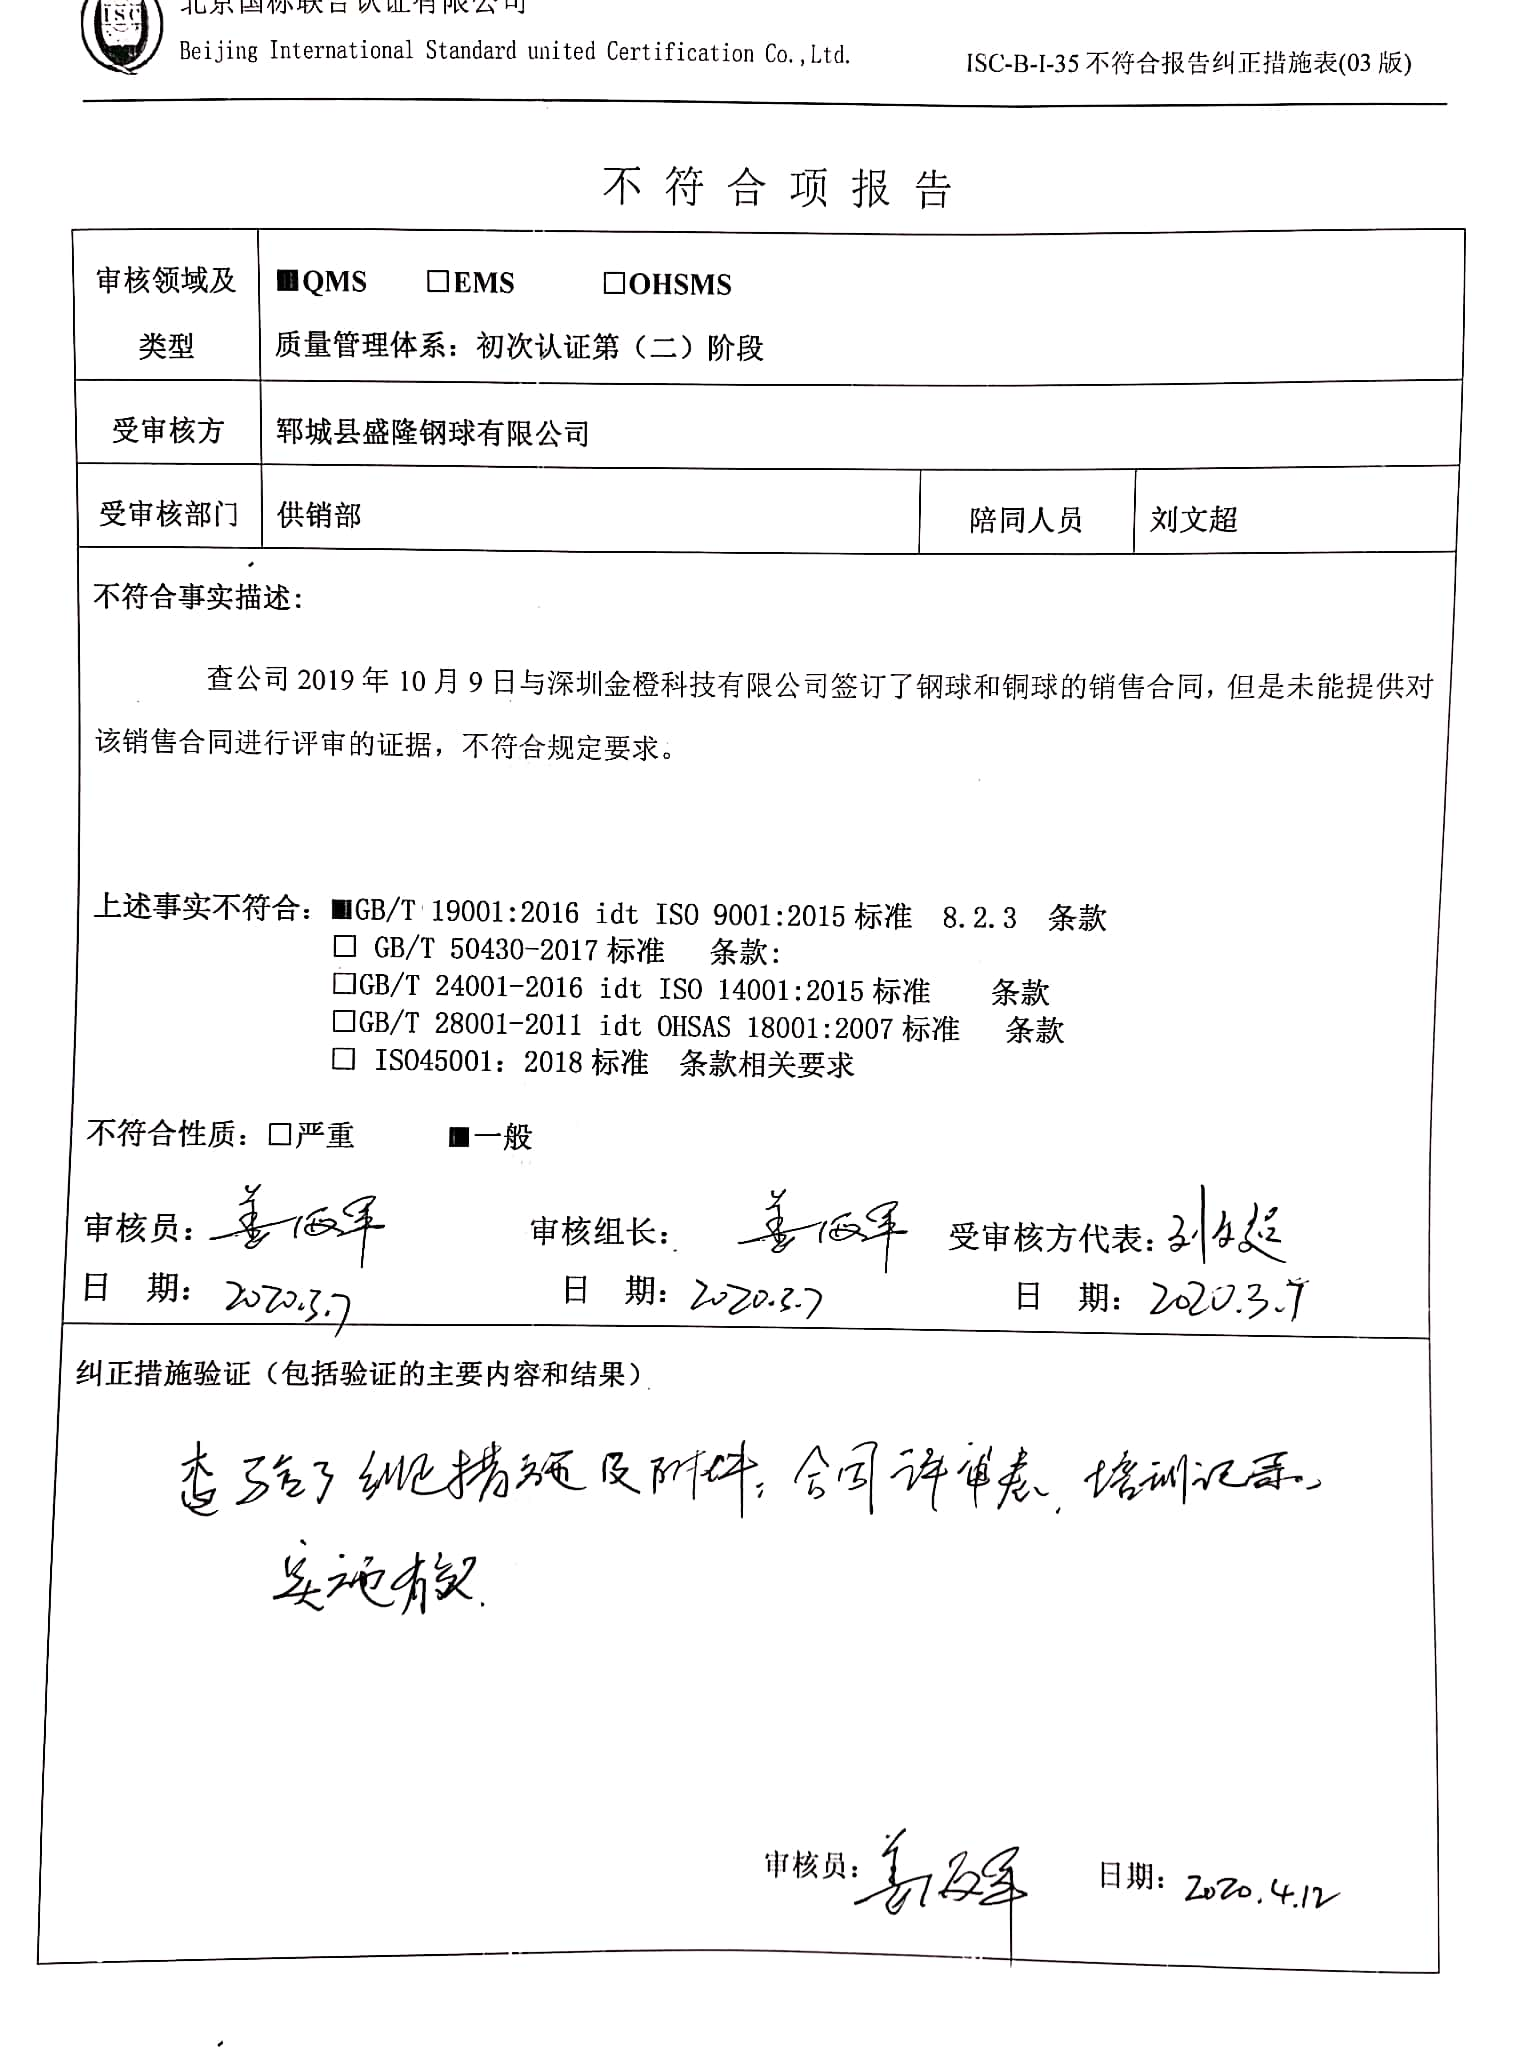 ISC
北京国标联合认证有限公司
Beijing International Standard united Certification Co.,Ltd.
ISC-B-I-35 不符合报告纠正措施表(03 版)
不符合项报告
审核领域及类型
■QMS □EMS □OHSMS
质量管理体系：初次认证第（二）阶段
受审核方 郓城县盛隆钢球有限公司
受审核部门 供销部 陪同人员 刘文超
不符合事实描述:
查公司 2019 年 10 月 9 日与深圳金橙科技有限公司签订了钢球和铜球的销售合同，但是未能提供对
该销售合同进行评审的证据，不符合规定要求。
上述事实不符合：■GB/T 19001:2016 idt ISO 9001:2015 标准 8.2.3 条款
□ GB/T 50430-2017 标准 条款:
□GB/T 24001-2016 idt ISO 14001:2015 标准 条款
□GB/T 28001-2011 idt OHSAS 18001:2007 标准 条款
□ ISO45001：2018 标准 条款相关要求
不符合性质：□严重 ■一般
审核员：姜海军 审核组长：姜海军 受审核方代表：刘文超
日 期：2020.3.7 日 期：2020.3.7 日 期：2020.3.7
纠正措施验证（包括验证的主要内容和结果）
查验了纠正措施及附件：合同评审表、培训记录。
实施有效.
审核员：姜海军 日期：2020.4.12